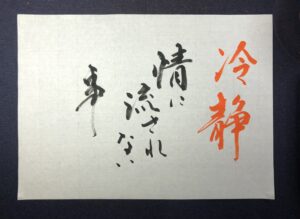 冷静
情に
流され
ない
事